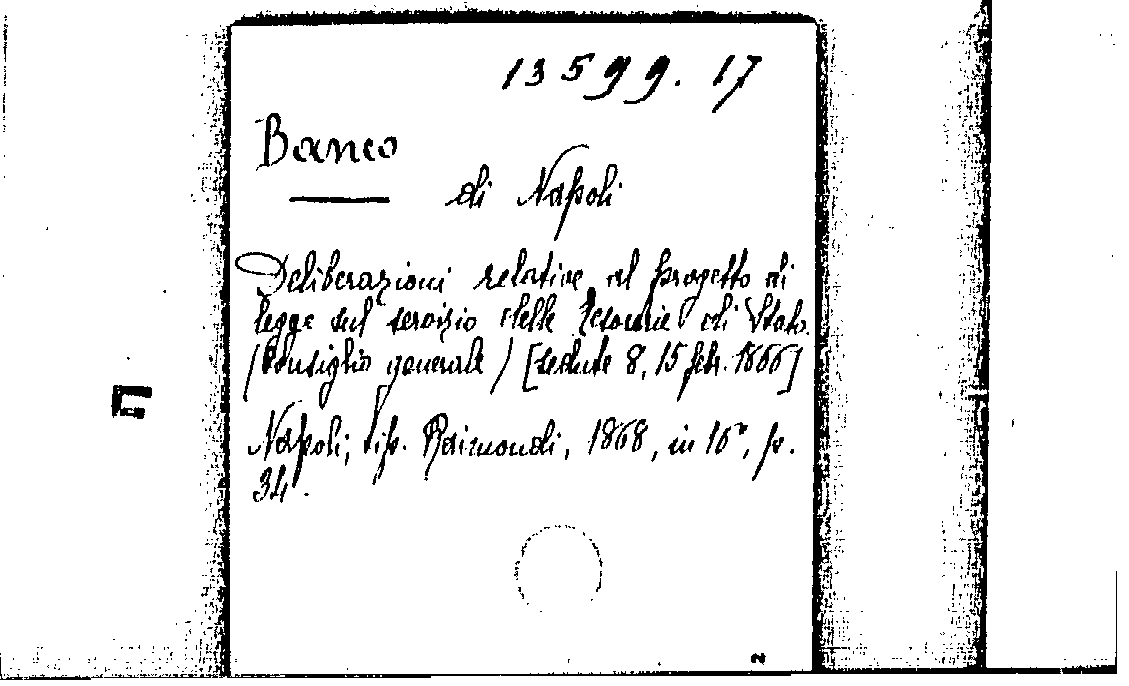 13599. 17
Banco
di Napoli
Deliberazioni relative al progetto di
legge sul servizio delle Tesorerie di Stato.
(Consiglio generale) [sedute 8, 15 febr. 1866]
Napoli, tip. Raimondi, 1868, in 16°, p.
34.
2